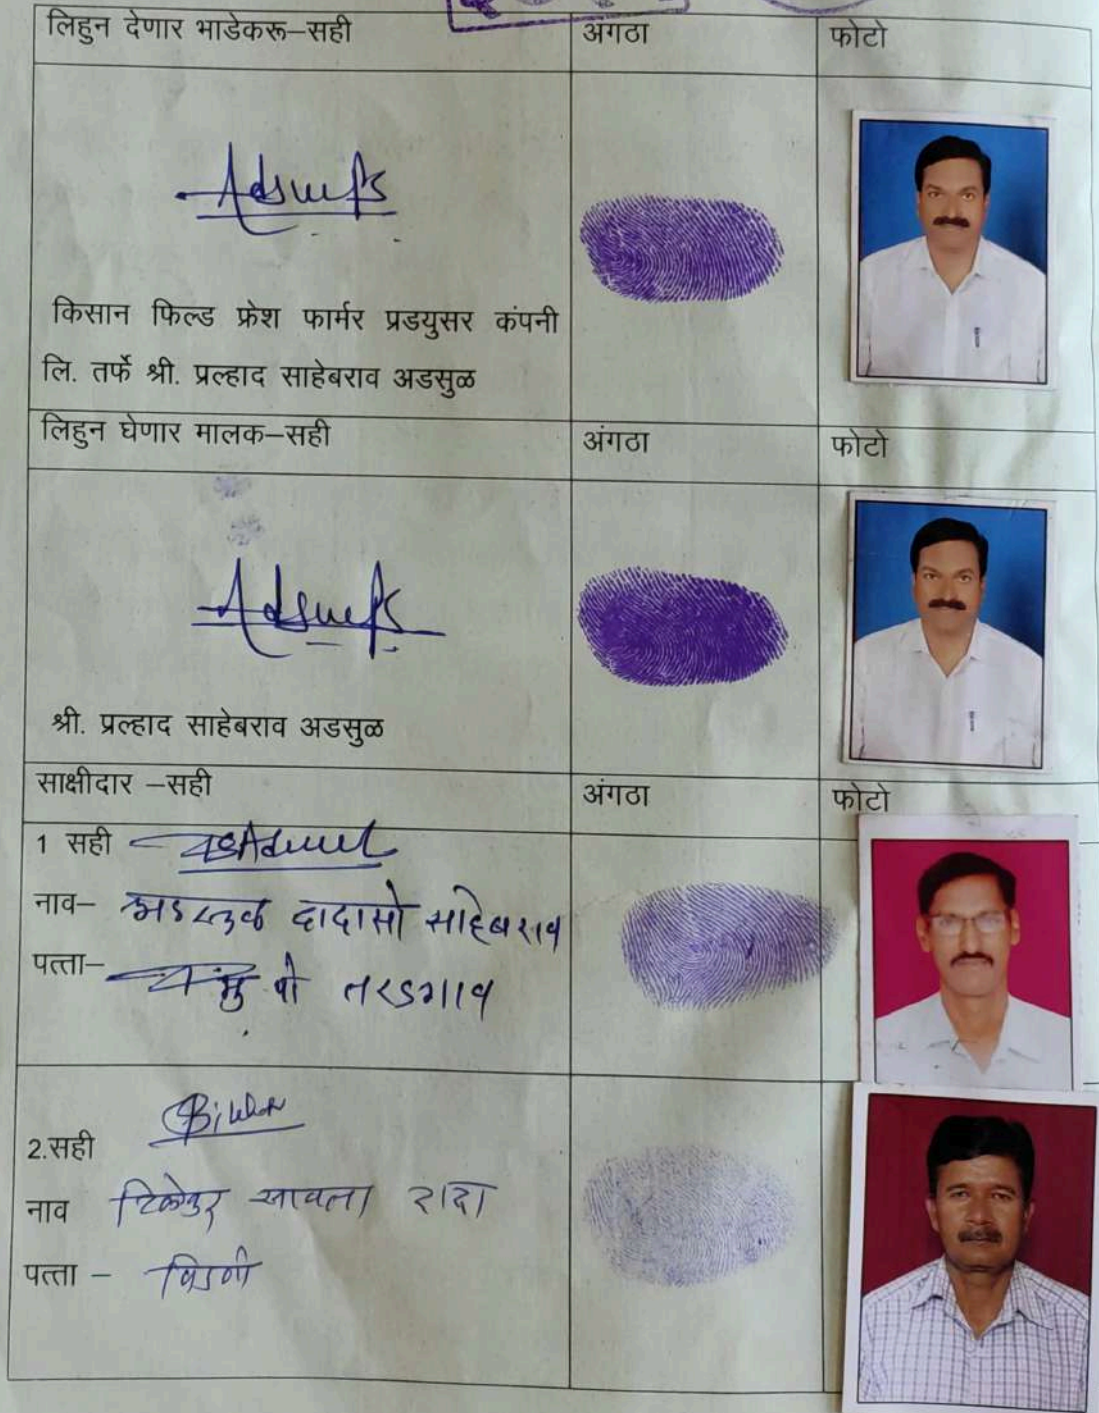 लिहुन देणार भाडेकरू–सही अंगठा फोटो
किसान फिल्ड फ्रेश फार्मर प्रडयुसर कंपनी
लि. तर्फे श्री. प्रल्हाद साहेबराव अडसुळ
लिहुन घेणार मालक–सही अंगठा फोटो
श्री. प्रल्हाद साहेबराव अडसुळ
साक्षीदार –सही अंगठा फोटो
1 सही
नाव– अडसुळ दादासो साहेबराव
पत्ता– मु पो तरडगाव
2.सही
नाव सावता दादा
पत्ता – विडणी